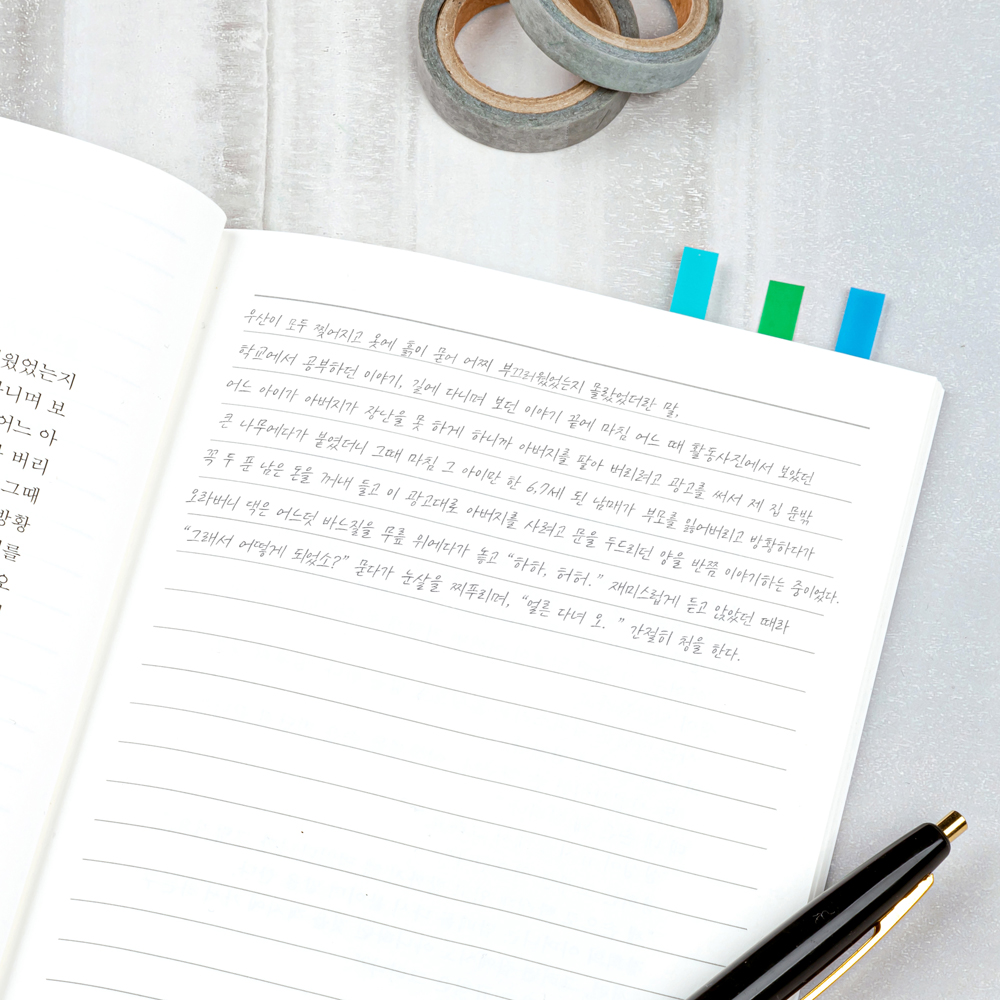 웠었는지
나니며 보
어느 아
버리
그때
방황
를
오
우산이 모두 찢어지고 옷에 흙이 묻어 어찌 부끄러웠었는지 몰랐었더란 말,
학교에서 공부하던 이야기, 길에 다니며 보던 이야기 끝에 마침 어느 때 활동사진에서 보았던
어느 아이가 아버지가 장난을 못 하게 하니까 아버지를 팔아 버리려고 광고를 써서 제 집 문밖
큰 나무에다가 붙였더니 그때 마침 그 아이만 한 6,7세 된 남매가 부모를 잃어버리고 방황하다가
꼭 두 푼 남은 돈을 꺼내 들고 이 광고대로 아버지를 사려고 문을 두드리던 양을 반쯤 이야기하는 중이었다.
오라버니 댁은 어느덧 바느질을 무릎 위에다가 놓고 “하하, 허허.” 재미스럽게 듣고 앉았던 때라
“그래서 어떻게 되었소?” 묻다가 눈살을 찌푸리며, “얼른 다녀 오. ” 간절히 청을 한다.